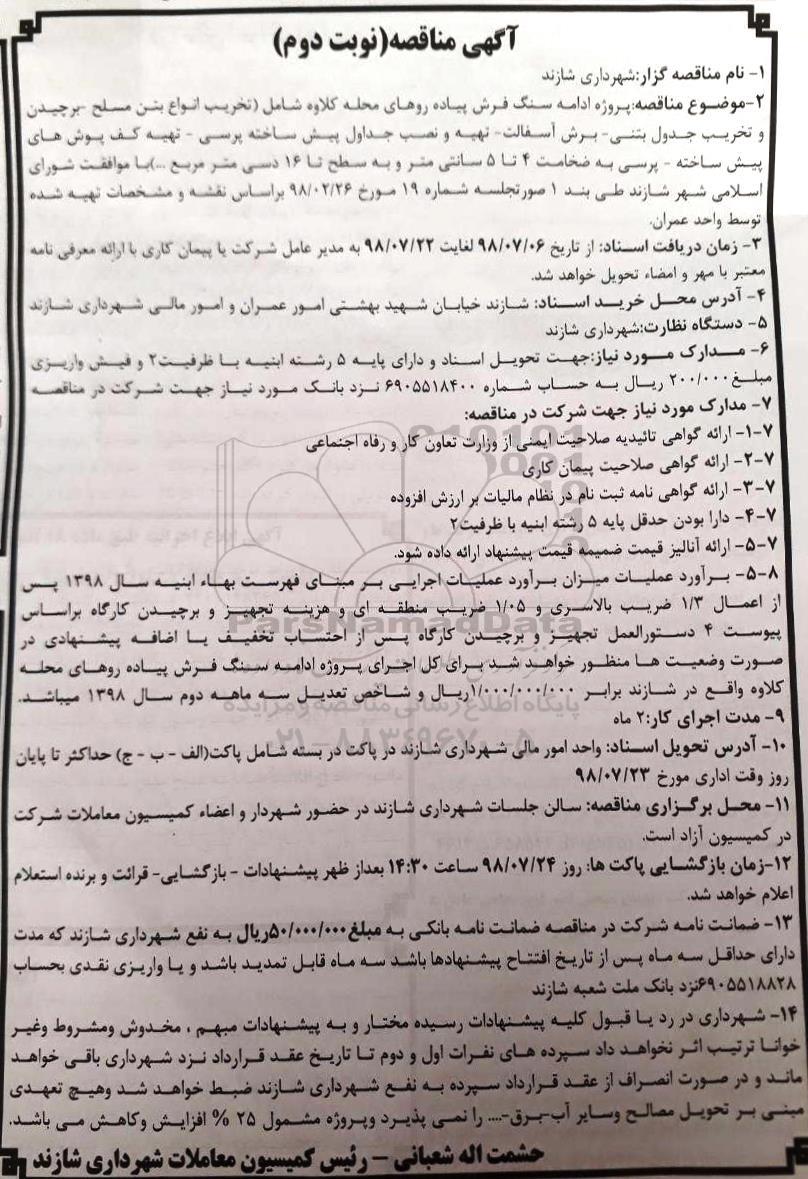 آگهی مناقصه(نوبت دوم)
۱- نام مناقصه گزار:شهرداری شازند
۲-موضوع مناقصه:پروژه ادامه سنگ فرش پیاده روهای محله کلاوه شامل (تخریب انواع بتن مسلح -برچیدن
و تخریب جدول بتنی- برش آسفالت- تهیه و نصب جداول پیش ساخته پرسی - تهیه کف پوش های
پیش ساخته - پرسی به ضخامت ۴ تا ۵ سانتی متر و به سطح تا ۱۶ دسی متر مربع ...)با موافقت شورای
اسلامی شهر شازند طی بند ۱ صورتجلسه شماره ۱۹ مورخ ۹۸/۰۲/۲۶ براساس نقشه و مشخصات تهیه شده
توسط واحد عمران.
۳- زمان دریافت اسناد: از تاریخ ۹۸/۰۷/۰۶ لغایت ۹۸/۰۷/۲۲ به مدیر عامل شرکت یا پیمان کاری با ارائه معرفی نامه
معتبر با مهر و امضاء تحویل خواهد شد.
۴- آدرس محل خرید اسناد: شازند خیابان شهید بهشتی امور عمران و امور مالی شهرداری شازند
۵- دستگاه نظارت:شهرداری شازند
۶- مدارک مورد نیاز:جهت تحویل اسناد و دارای پایه ۵ رشته ابنیه با ظرفیت۲ و فیش واریزی
مبلغ۲۰۰/۰۰۰ ریال به حساب شماره ۶۹۰۵۵۱۸۴۰۰ نزد بانک مورد نیاز جهت شرکت در مناقصه
۷- مدارک مورد نیاز جهت شرکت در مناقصه:
۷-۱- ارائه گواهی تائیدیه صلاحیت ایمنی از وزارت تعاون کار و رفاه اجتماعی
۷-۲- ارائه گواهی صلاحیت پیمان کاری
۷-۳- ارائه گواهی نامه ثبت نام در نظام مالیات بر ارزش افزوده
۷-۴- دارا بودن حدقل پایه ۵ رشته ابنیه با ظرفیت۲
۷-۵- ارائه آنالیز قیمت ضمیمه قیمت پیشنهاد ارائه داده شود.
۸-۵- برآورد عملیات میزان برآورد عملیات اجرایی بر مبنای فهرست بهاء ابنیه سال ۱۳۹۸ پس
از اعمال ۱/۳ ضریب بالاسری و ۱/۰۵ ضریب منطقه ای و هزینه تجهیز و برچیدن کارگاه براساس
پیوست ۴ دستورالعمل تجهیز و برچیدن کارگاه پس از احتساب تخفیف یا اضافه پیشنهادی در
صورت وضعیت ها منظور خواهد شد برای کل اجرای پروژه ادامه سنگ فرش پیاده روهای محله
کلاوه واقع در شازند برابر ۱/۰۰۰/۰۰۰/۰۰۰ریال و شاخص تعدیل سه ماهه دوم سال ۱۳۹۸ میباشد.
۹- مدت اجرای کار:۲ ماه
۱۰- آدرس تحویل اسناد: واحد امور مالی شهرداری شازند در پاکت در بسته شامل پاکت(الف - ب - ج) حداکثر تا پایان
روز وقت اداری مورخ ۹۸/۰۷/۲۳
۱۱- محل برگزاری مناقصه: سالن جلسات شهرداری شازند در حضور شهردار و اعضاء کمیسیون معاملات شرکت
در کمیسیون آزاد است.
۱۲-زمان بازگشایی پاکت ها: روز ۹۸/۰۷/۲۴ ساعت ۱۴:۳۰ بعداز ظهر پیشنهادات - بازگشایی- قرائت و برنده استعلام
اعلام خواهد شد.
۱۳- ضمانت نامه شرکت در مناقصه ضمانت نامه بانکی به مبلغ۵۰/۰۰۰/۰۰۰ریال به نفع شهرداری شازند که مدت
دارای حداقل سه ماه پس از تاریخ افتتاح پیشنهادها باشد سه ماه قابل تمدید باشد و یا واریزی نقدی بحساب
۶۹۰۵۵۱۸۸۲۸نزد بانک ملت شعبه شازند
۱۴- شهرداری در رد یا قبول کلیه پیشنهادات رسیده مختار و به پیشنهادات مبهم ، مخدوش ومشروط وغیر
خوانا ترتیب اثر نخواهد داد سپرده های نفرات اول و دوم تا تاریخ عقد قرارداد نزد شهرداری باقی خواهد
ماند و در صورت انصراف از عقد قرارداد سپرده به نفع شهرداری شازند ضبط خواهد شد وهیچ تعهدی
مبنی بر تحویل مصالح وسایر آب-برق-.... را نمی پذیرد وپروژه مشمول ۲۵ % افزایش وکاهش می باشد.
حشمت اله شعبانی - رئیس کمیسیون معاملات شهرداری شازند
ParsNamadData
پایگاه اطلاع رسانی مناقصه و مزایده
۰۲۱-۸۸۳۴۹۶۷۰-۵